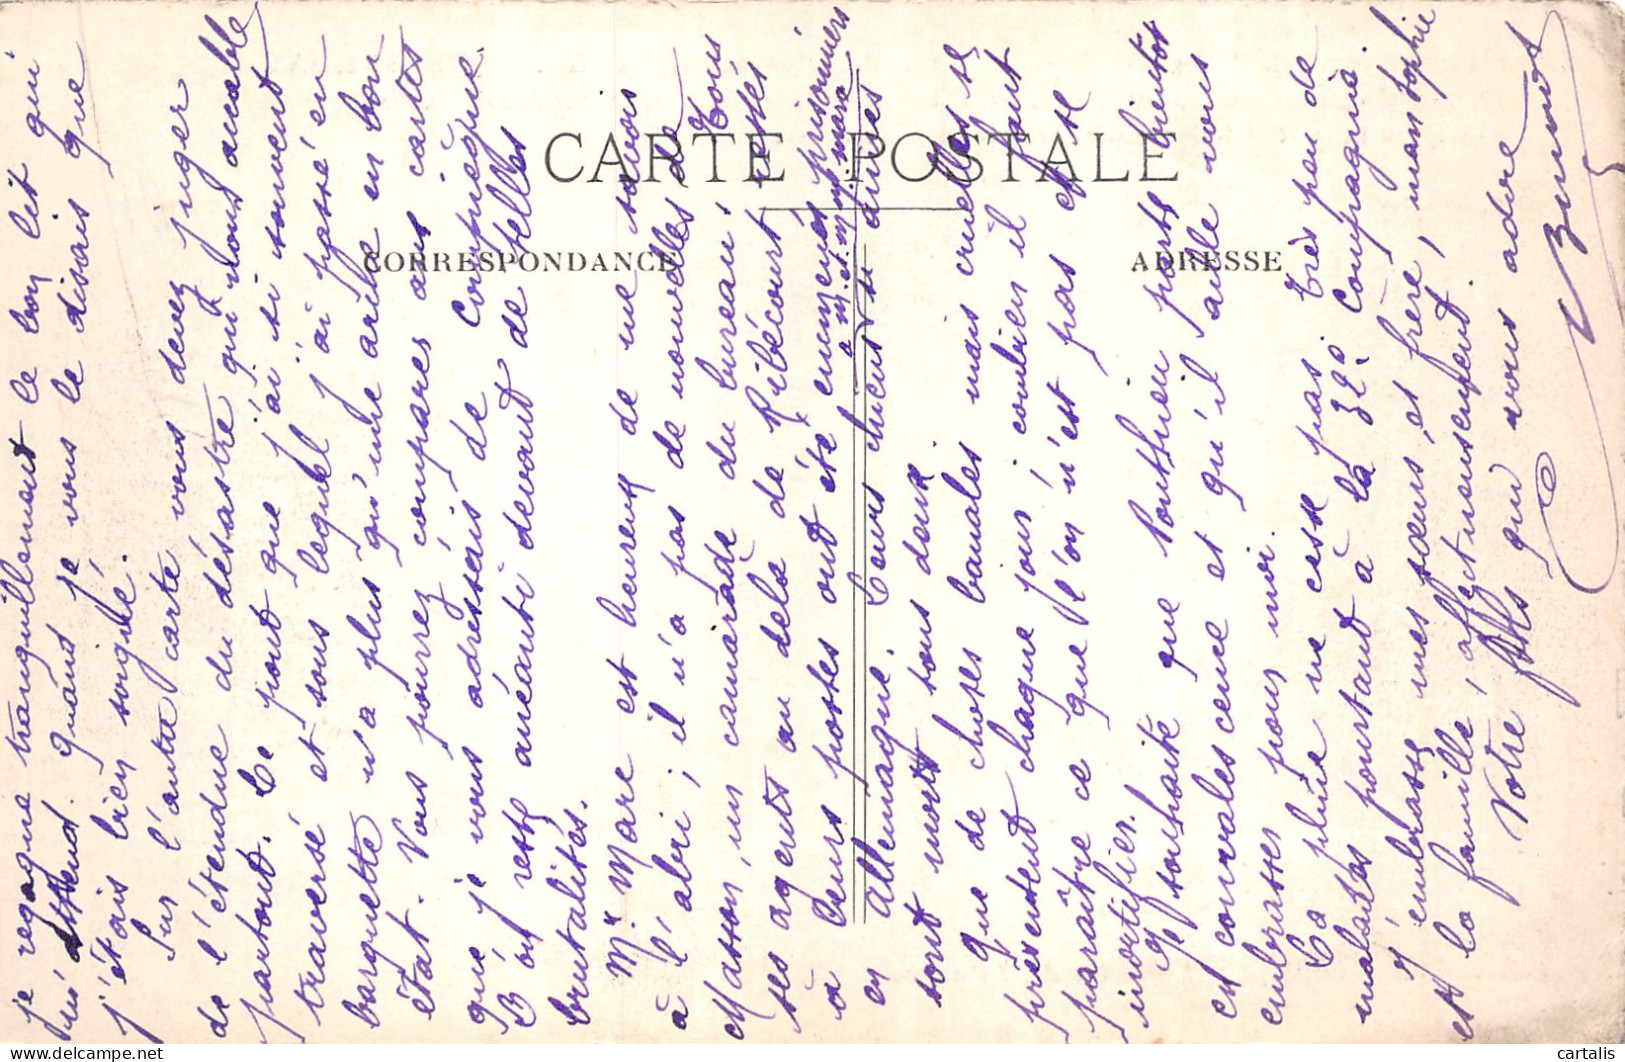 CARTE POSTALE
CORRESPONDANCE
ADRESSE
je regagne tranquillement le bon lit qui
m'attend. Quand je vous le disais que
j'étais bien soigné.
Sur l'autre carte, vous devez juger
de l'étendue du désastre qui nous accable
partout. Ce pont que j'ai si souvent
traversé et sous lequel j'ai passé en
barquette n'a plus qu'une arche en bon
état. Vous pourrez comparer aux cartes
que je vous adressais de Compiègne.
L'on reste anéanti devant de telles
brutalités.
Mr Mare est heureux de me savoir
à l'abri; il n'a pas de nouvelles de
Masson, un camarade du bureau. Tous
ses agents au delà de Ribécourt restés
à leurs postes ont été emmenés prisonniers
a M. et Mme Mare
en Allemagne. Leurs chiens
sont morts tous deux.
Que de choses banales mais cruelles se
présentent chaque jour; combien il faut
paraître ce que l'on n'est pas et se
mortifier.
Je souhaite que Ponthieu parte bientôt
en convalescence et qu'il aille vous
embrasser pour moi.
La pluie ne cesse pas. Très peu de
malades pourtant à la 32e Compagnie.
J'embrasse mes sœurs, et frère, man Sophie
et la famille, affectueusement.
Votre fils qui vous adore
cartalis